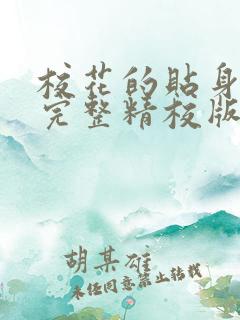 校花的贴身
完整精校版
胡某雄
未经同意禁止转载